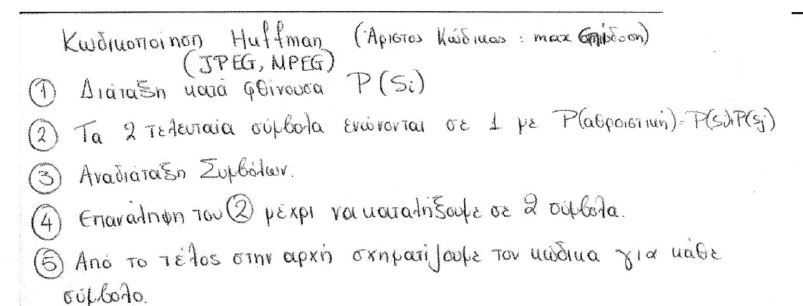 Κωδικοποίηση Huffman (Άριστος Κώδικας : max Επίδοση)
(JPEG, MPEG)
① Διάταξη κατά φθίνουσα P(Si)
② Τα 2 τελευταία σύμβολα ενώνονται σε 1 με P(αθροιστική)=P(si)+P(sj)
③ Αναδιάταξη Συμβόλων.
④ Επανάληψη του ② μέχρι να καταλήξουμε σε 2 σύμβολα.
⑤ Από το τέλος στην αρχή σχηματίζουμε τον κώδικα για κάθε
σύμβολο.